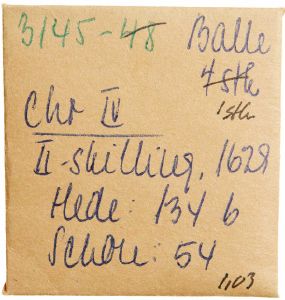 3145-48 Balle
4 stk
1 stk
Chr IV
II-skilling, 1629
Hede: 134 b
Schou: 54
1,03